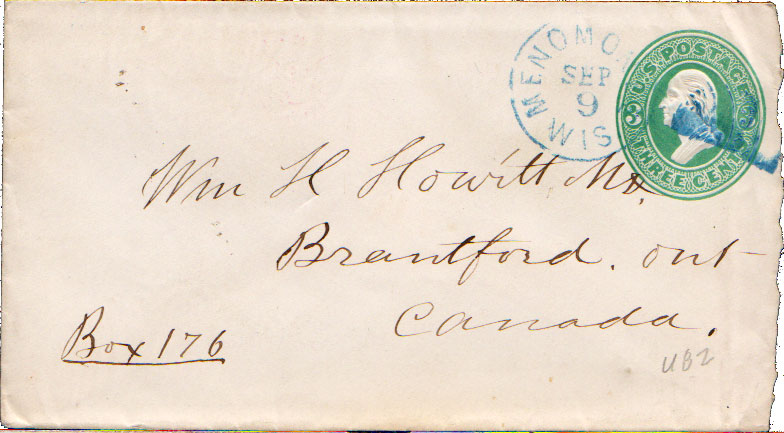 MENOMO
SEP
9
WIS
U.S. POSTAGE
3 3
THREE CENTS
Wm H Howitt
Brantford. Ont
Canada.
Box 176
UB2